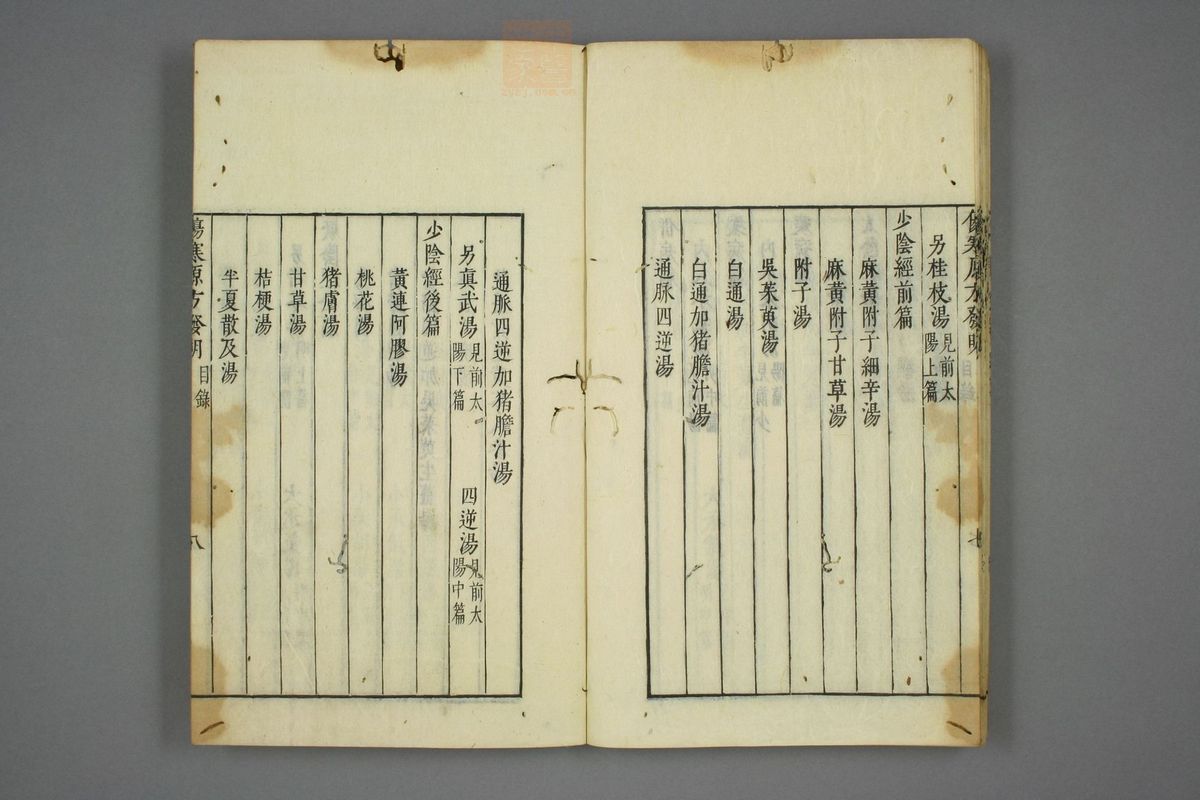 另桂枝湯見前太陽上篇
少陰經前篇
麻黃附子細辛湯
麻黃附子甘草湯
附子湯
吳茱萸湯
白通湯
白通加猪膽汁湯
通脈四逆湯
通脈四逆加猪膽汁湯
另真武湯見前太陽下篇 四逆湯見前太陽中篇
少陰經後篇
黃連阿膠湯
桃花湯
猪膚湯
甘草湯
桔梗湯
半夏散及湯
傷寒原方發明 目錄 八